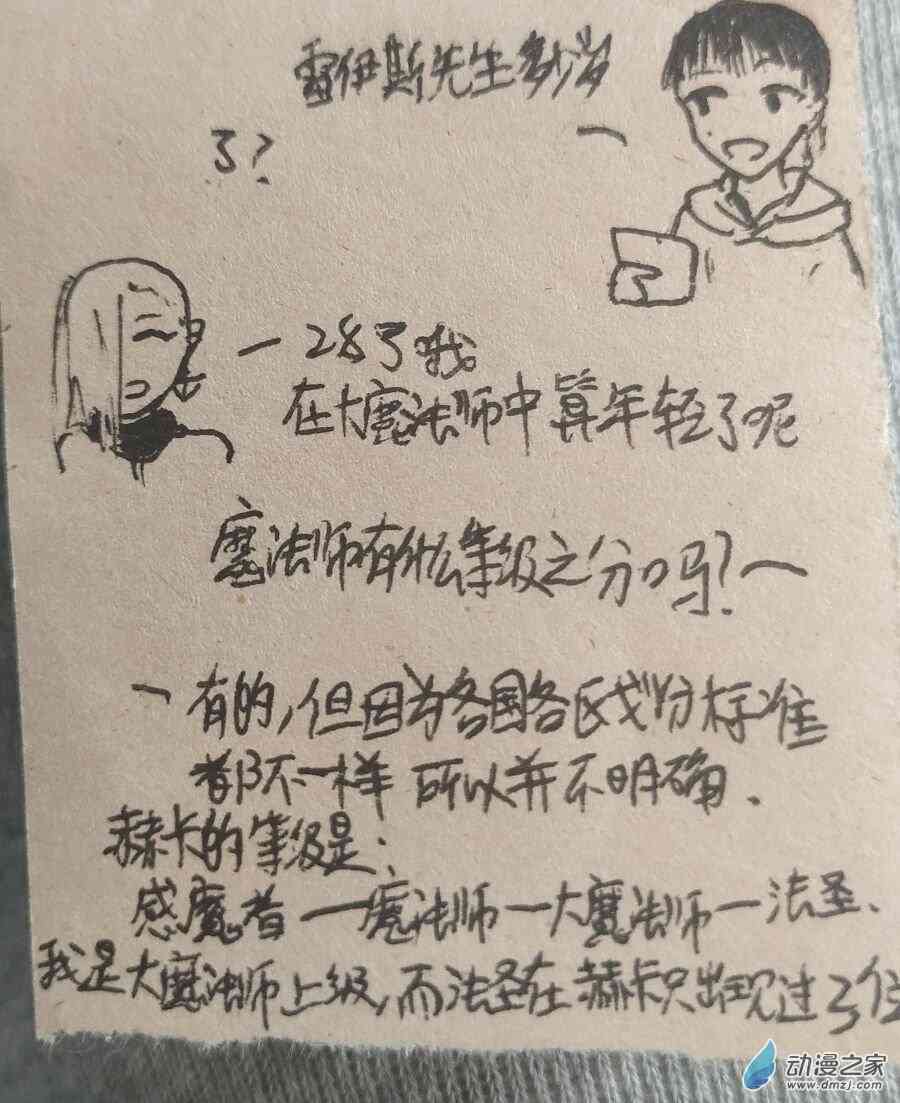 雷伊斯先生多少岁
了?
一28了哦
在大魔法师中算年轻了呢
魔法师有什么等级之分吗?一
一有的,但因为各国各区划分标准
都不一样 所以并不明确.
赫卡的等级是:
感魔者一魔法师一大魔法师一法圣、
我是大魔法师上级,而法圣在赫卡只出现过3位
动漫之家
www.dmzj.com